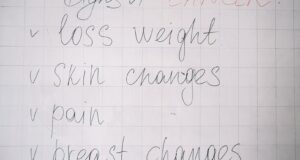 Signs of CANCER:
v loss weight
v skin changes
v pain
v breast changes